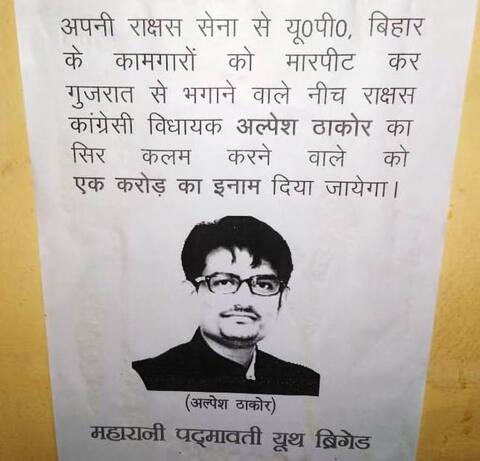 अपनी राक्षस सेना से यू0पी0, बिहार
के कामगारों को मारपीट कर
गुजरात से भगाने वाले नीच राक्षस
कांग्रेसी विधायक अल्पेश ठाकोर का
सिर कलम करने वाले को
एक करोड़ का इनाम दिया जायेगा।
(अल्पेश ठाकोर)
महारानी पद्मावती यूथ ब्रिगेड